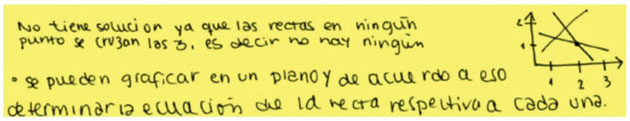 No tiene solución ya que las rectas en ningún
punto se cruzan las 3, es decir no hay ningún
• se pueden graficar en un plano y de acuerdo a eso
determinar la ecuación de la recta respectiva a cada una.
2
1
1 2 3